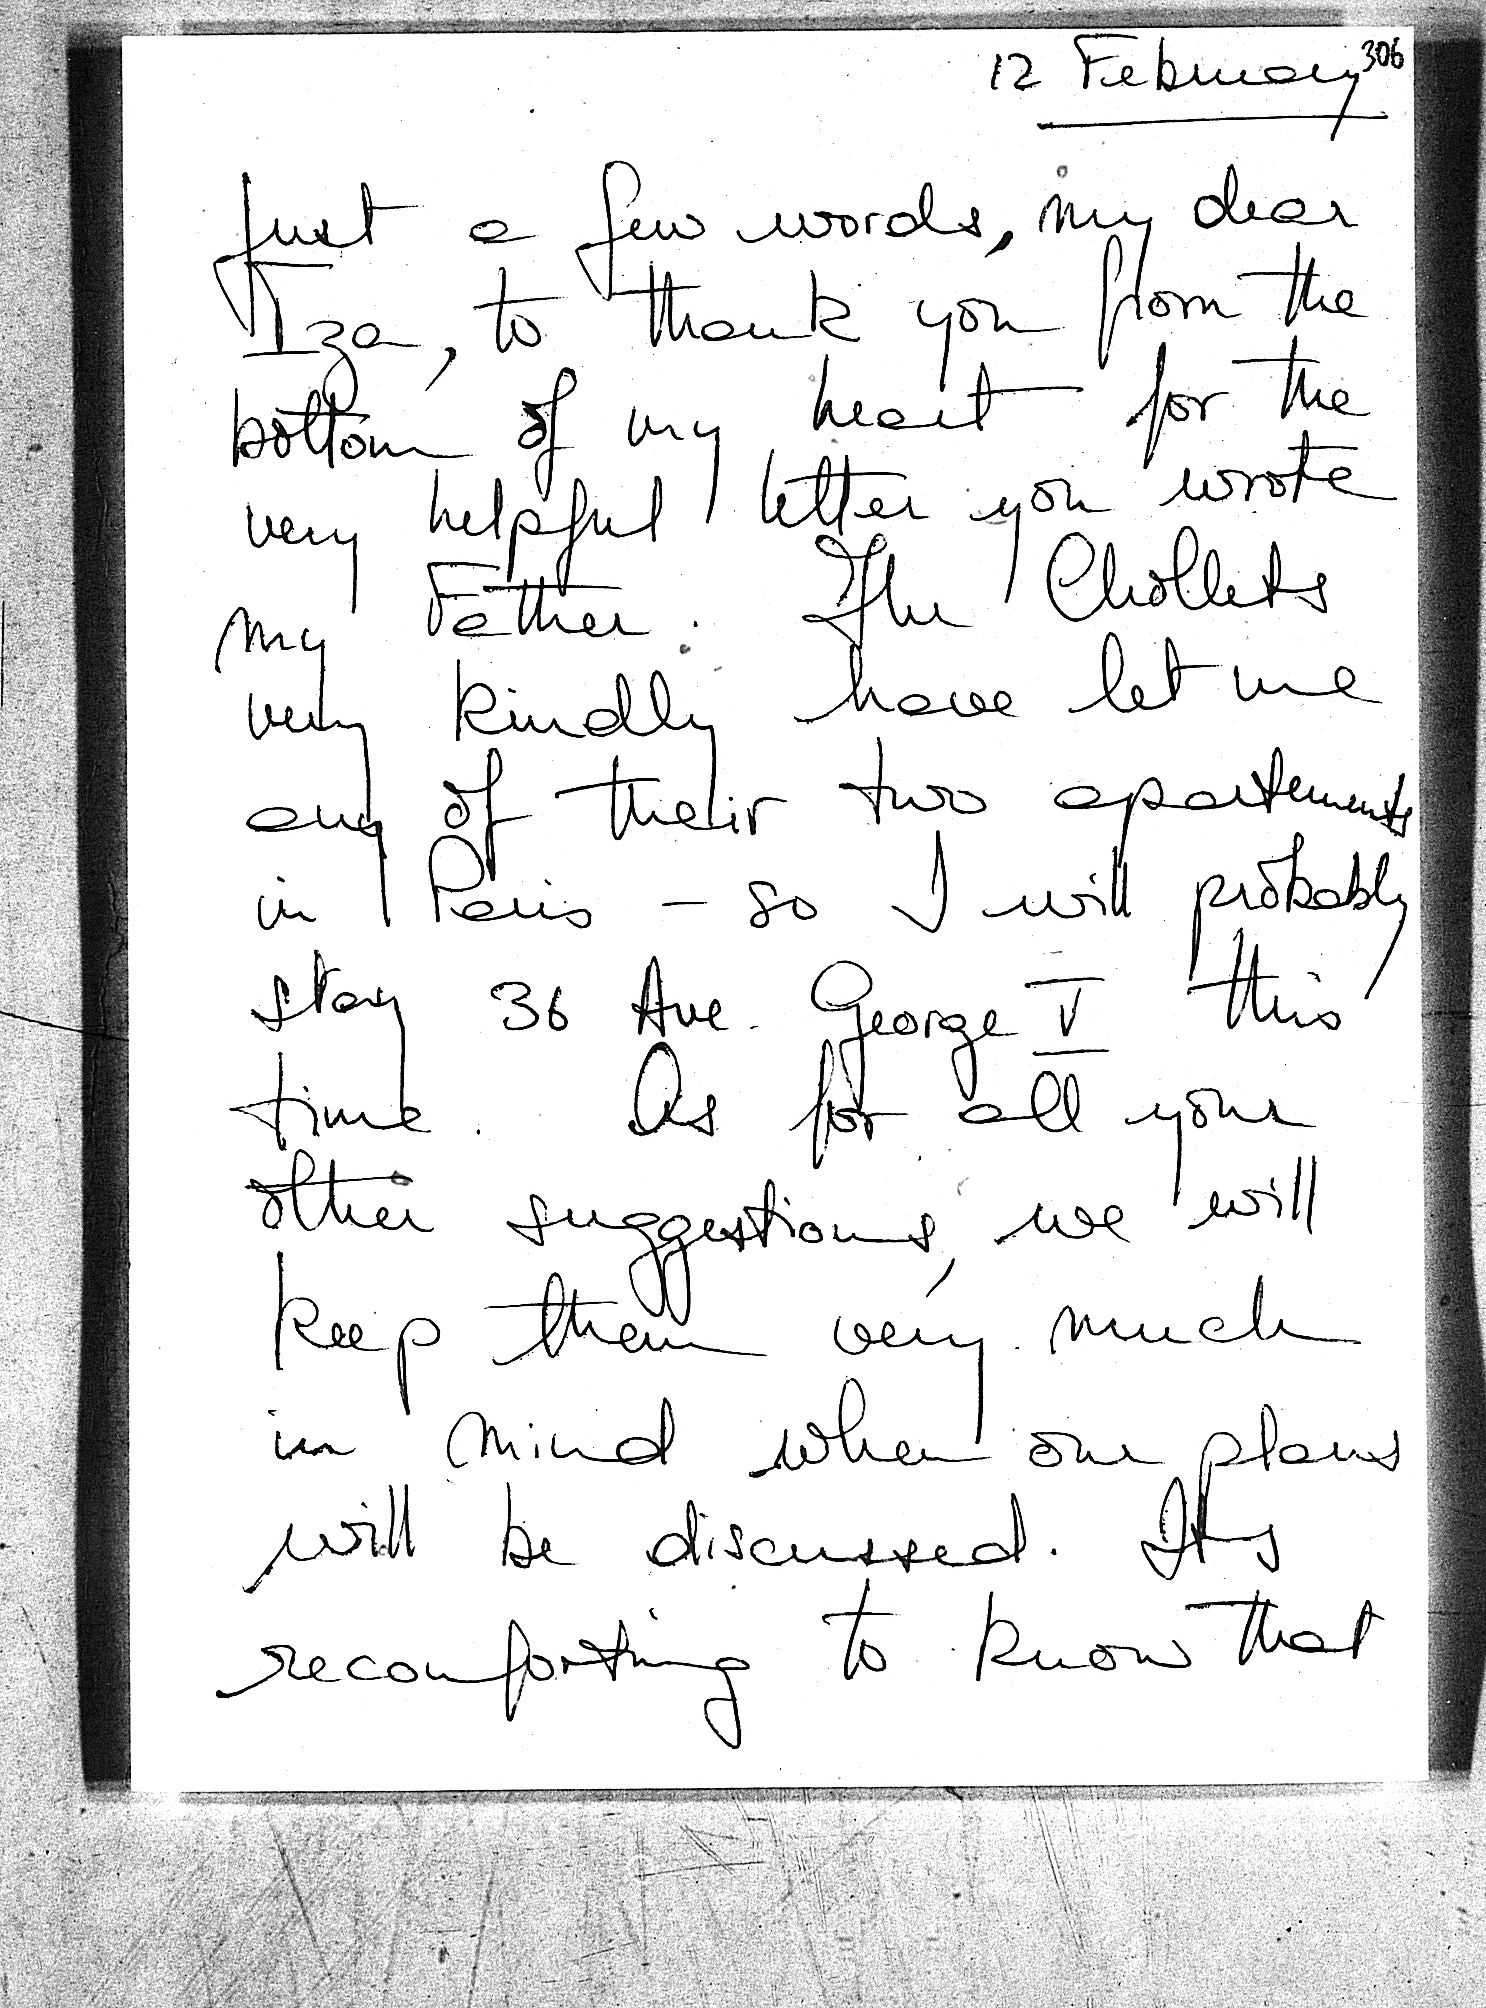 306
12 February
Just a few words, my dear
Iza, to thank you from the
bottom of my heart for the
very helpful letter you wrote
my Father. The Chollets
very kindly have let me
any of their two apartements
in Paris – so I will probably
stay 36 Ave. George V this
time. As for all your
other suggestions, we will
keep them very much
in mind when our plans
will be discussed. It's
recomforting to know that